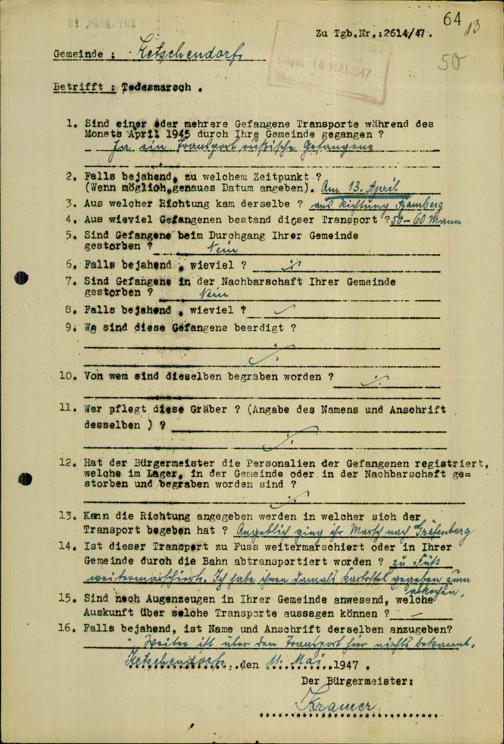 64
13
Zu Tgb.Nr.:2614/47.
50
Gemeinde : Ketschendorf
14. MAI 1947
Betrifft : Todesmarsch .
1. Sind einer oder mehrere Gefangene Transporte während des
Monats April 1945 durch Ihre Gemeinde gegangen ?
Ja ein Transport russische Gefangene
2. Falls bejahend, zu welchem Zeitpunkt ?
(Wenn möglich,genaues Datum angeben). Am 13. April
3. Aus welcher Richtung kam derselbe ? aus Richtung Bamberg
4. Aus wieviel Gefangenen bestand dieser Transport ? 50-60 Mann
5. Sind Gefangene beim Durchgang Ihrer Gemeinde
gestorben ? Nein
6. Falls bejahend , wieviel ? ./.
7. Sind Gefangene in der Nachbarschaft Ihrer Gemeinde
gestorben ? Nein
8. Falls bejahend , wieviel ?
9. Wo sind diese Gefangene beerdigt ?
./.
10. Von wem sind dieselben begraben worden ? ./.
11. Wer pflegt diese Gräber ? (Angabe des Namens und Anschrift
desselben ) ?
./.
12. Hat der Bürgermeister die Personalien der Gefangenen registriert,
welche im Lager, in der Gemeinde oder in der Nachbarschaft ge=
storben und begraben worden sind ?
./.
13. Kann die Richtung angegeben werden in welcher sich der
Transport begeben hat ? Angeblich ging ihr Marsch nach Gräfenberg
14. Ist dieser Transport zu Fuss weitermarschiert oder in Ihrer
Gemeinde durch die Bahn abtransportiert worden ? zu Fuß
weitermarschiert. Ich habe ihnen damals Kartoffel gegeben zum
15. Sind noch Augenzeugen in Ihrer Gemeinde anwesend, welche
Auskunft über solche Transporte aussagen können ?
16. Falls bejahend, ist Name und Anschrift derselben anzugeben?
Weiter ist über den Transport hier nichts bekannt.
Ketschendorf, den 11. Mai 1947 .
Der Bürgermeister:
Kramer